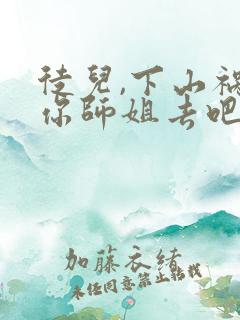 徒兒,下山祸
你師姐去吧
加藤衣緒
未经同意禁止转载